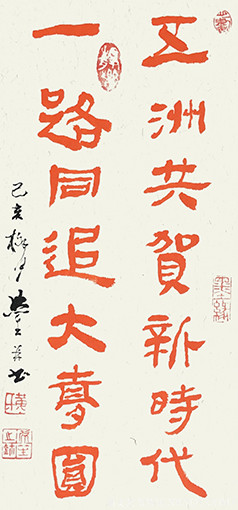 五洲共賀新時代
一路同追大夢圓
己亥